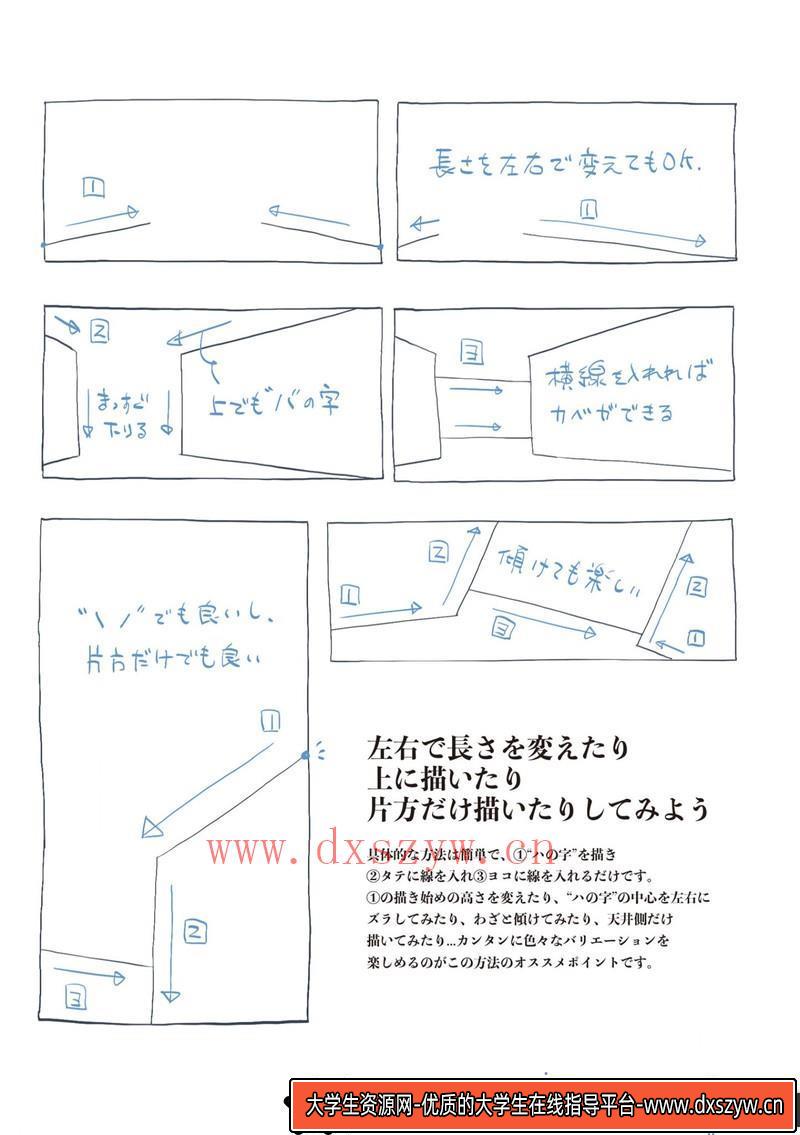 ①
長さを左右で変えてもOK.
①
②
まっすぐ
下りる
上でも"ハ"の字
③
横線を入れれば
カベができる
"\ /"でも良いし、
片方だけでも良い
①
②
③
①
②
傾けても楽しい
③
②
①
左右で長さを変えたり
上に描いたり
片方だけ描いたりしてみよう
具体的な方法は簡単で、①“ハの字”を描き
②タテに線を入れ③ヨコに線を入れるだけです。
①の描き始めの高さを変えたり、“ハの字”の中心を左右に
ズラしてみたり、わざと傾けてみたり、天井側だけ
描いてみたり...カンタンに色々なバリエーションを
楽しめるのがこの方法のオススメポイントです。
www.dxszyw.cn
大学生资源网-优质的大学生在线指导平台-www.dxszyw.cn